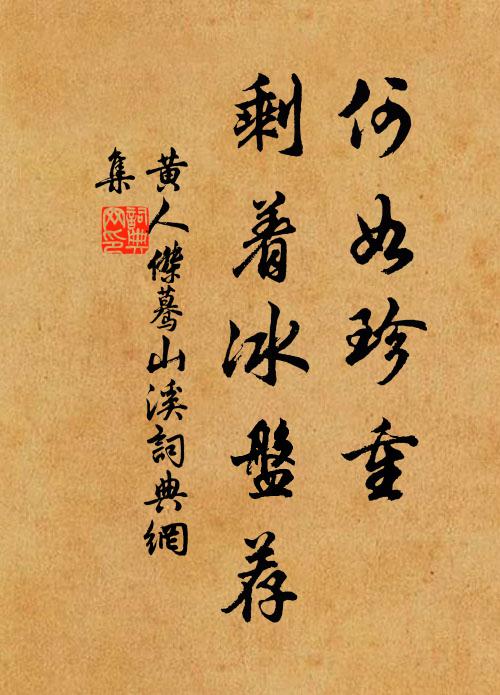 何如珍重
剩着冰盤荐
黄人傑驀山溪詞典網
集
詞典網印